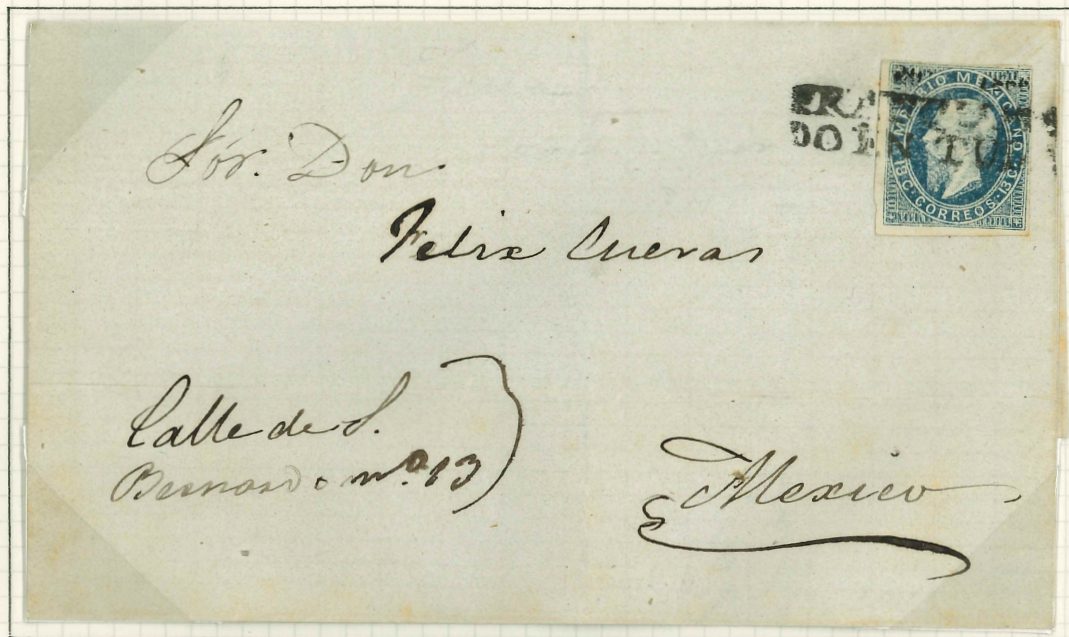 Sór. Don
Felix Cuevas
Calle de S.
Bernardo nº. 13
Mexico
IMPERIO MEXICANO
13 C. CORREOS. 13 C.